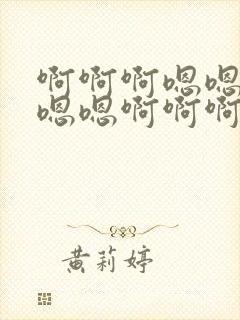 啊啊啊嗯嗯
嗯嗯啊啊啊
黄莉婷